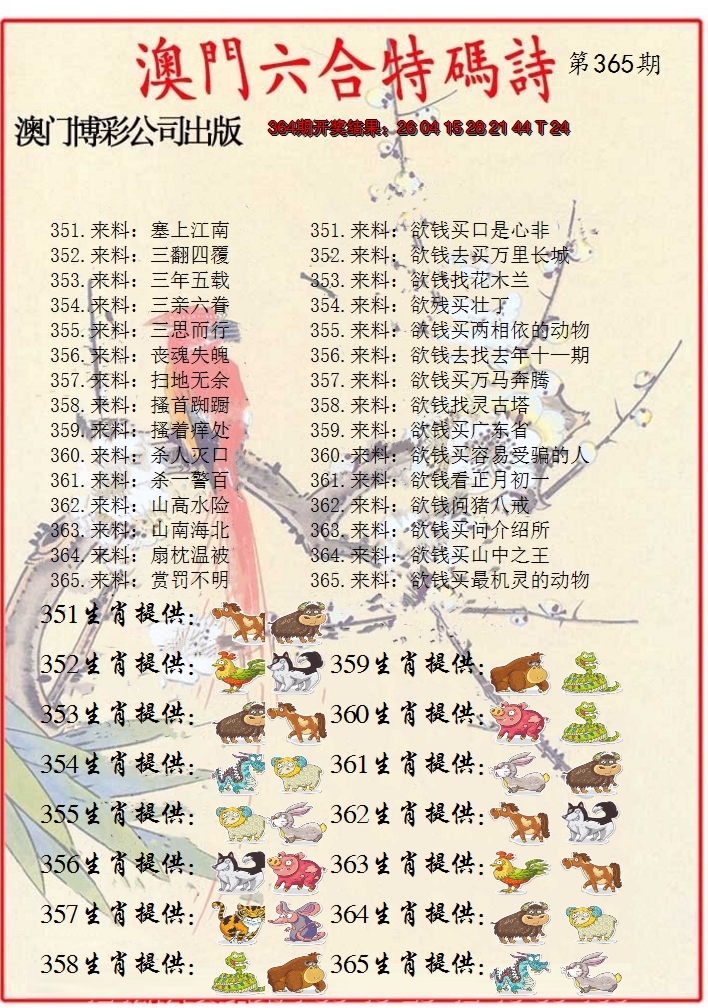 澳門六合特碼詩 第365期
澳门博彩公司出版 364期开奖结果：26 04 15 28 21 44 T 24
351.来料：塞上江南 351.来料：欲钱买口是心非
352.来料：三翻四覆 352.来料：欲钱去买万里长城
353.来料：三年五载 353.来料：欲钱找花木兰
354.来料：三亲六眷 354.来料：欲残买壮丁
355.来料：三思而行 355.来料：欲钱买两相依的动物
356.来料：丧魂失魄 356.来料：欲钱去找去年十一期
357.来料：扫地无余 357.来料：欲钱买万马奔腾
358.来料：搔首踟蹰 358.来料：欲钱找灵古塔
359.来料：搔着痒处 359.来料：欲钱买广东省
360.来料：杀人灭口 360.来料：欲钱买容易受骗的人
361.来料：杀一警百 361.来料：欲钱看正月初一
362.来料：山高水险 362.来料：欲钱问猪八戒
363.来料：山南海北 363.来料：欲钱买问介绍所
364.来料：扇枕温被 364.来料：欲钱买山中之王
365.来料：赏罚不明 365.来料：欲钱买最机灵的动物
351生肖提供：
352生肖提供： 359生肖提供：
353生肖提供： 360生肖提供：
354生肖提供： 361生肖提供：
355生肖提供： 362生肖提供：
356生肖提供： 363生肖提供：
357生肖提供： 364生肖提供：
358生肖提供： 365生肖提供：